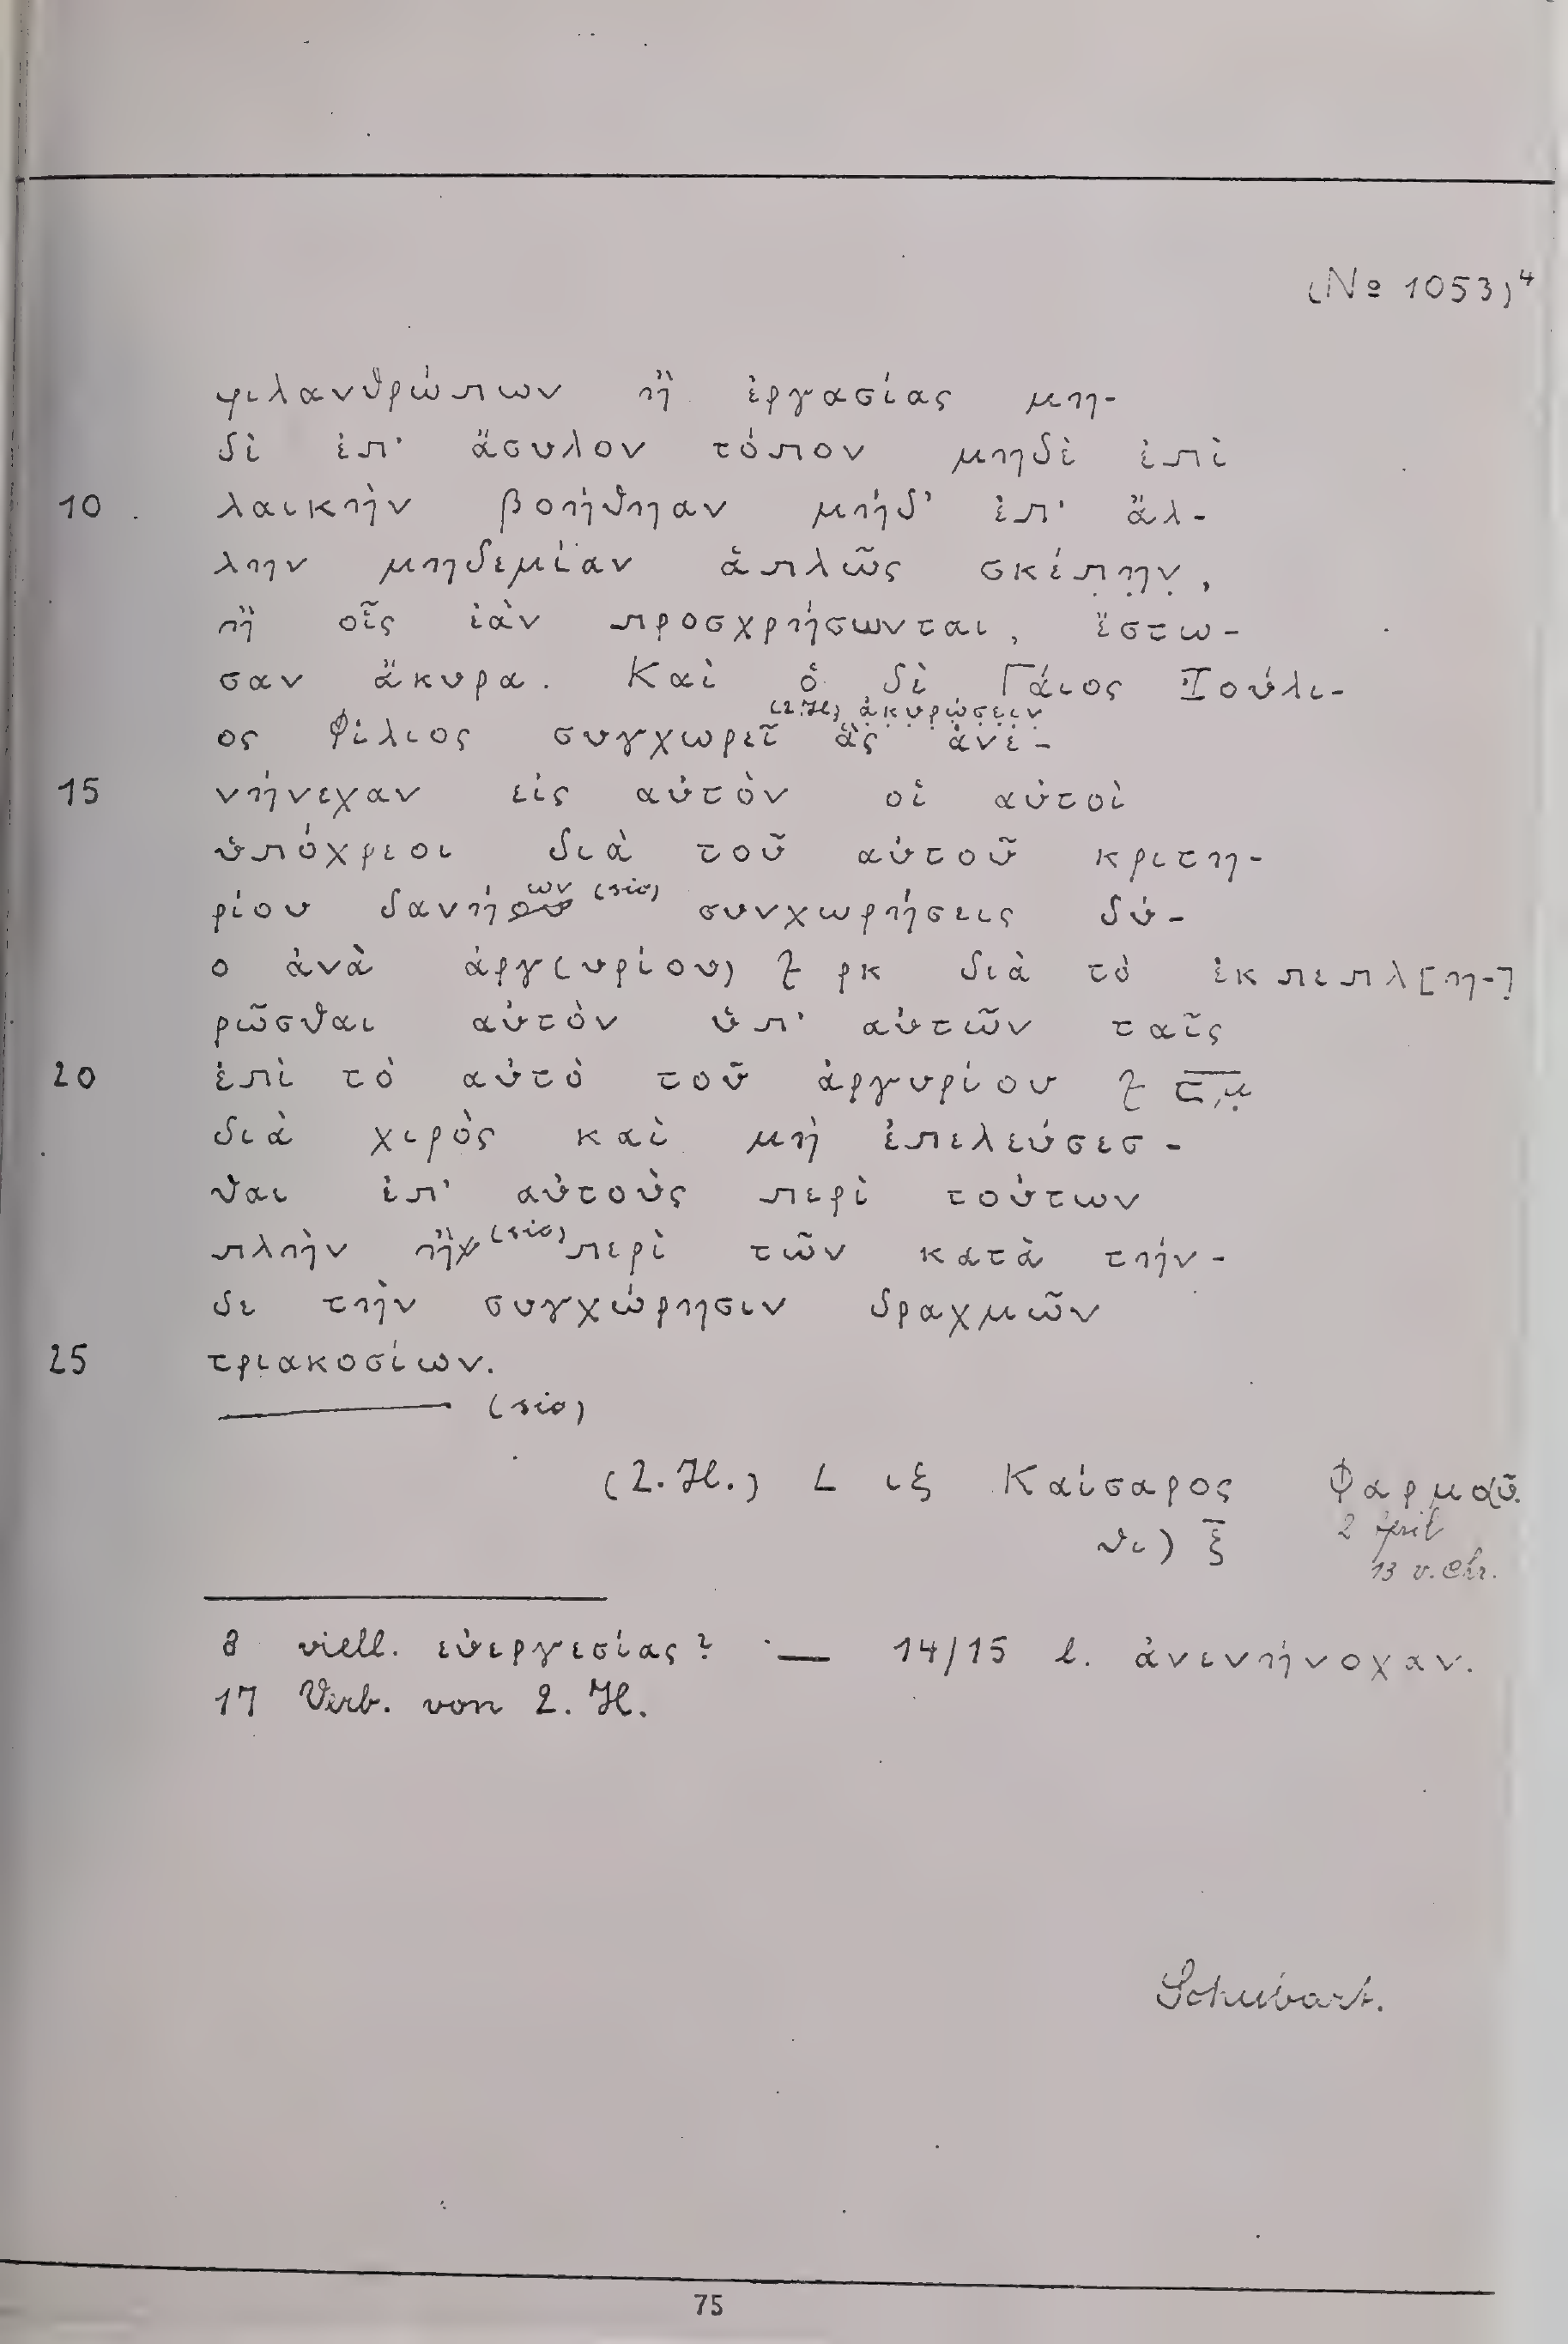 (№ 1053)⁴
φιλανθρώπων ἢ ἐργασίας μη-
δὲ ἐπ' ἄσυλον τόπον μηδὲ ἐπὶ
10 λαικὴν βοήθηαν μήδ' ἐπ' ἄλ-
λην μηδεμίαν ἁπλῶς σκέπ̣η̣ν̣,
ἢ οἷς ἐὰν προσχρήσωνται, ἔστω-
σαν ἄκυρα. Καὶ ὁ δὲ Γάιος Ἰούλι-
(2.H.) ἀ̣κ̣υ̣ρ̣ώ̣σ̣ε̣ι̣ν̣
ος Φίλιος συγχωρεῖ ἃς ἀνε-
15 νήνεχαν εἰς αὐτὸν οἱ αὐτοὶ
ὑπόχρεοι διὰ τοῦ αὐτοῦ κριτη-
ων (sic)
ρίου δανήου συνχωρήσεις δύ-
ο ἀνὰ ἀργ(υρίου) ʅ ρκ διὰ τὸ ἐκπεπλ[η-]
ρῶσθαι αὐτὸν ὑπ' αὐτῶν ταῖς
20 ἐπὶ τὸ αὐτὸ τοῦ ἀργυρίου ʅ σ̅μ̣̅
διὰ χιρὸς καὶ μὴ ἐπελεύσεσ-
θαι ἐπ' αὐτοὺς περὶ τούτων
πλὴν ἢν (sic) περὶ τῶν κατὰ τήν-
δε τὴν συγχώρησιν δραχμῶν
25 τριακοσίων.
(sic)
(2.H.) L ιξ Καίσαρος Φαρμοῦ
θι) ξ̅ 2 April
13 v. Chr.
8 viell. εὐεργεσίας? — 14/15 l. ἀνενήνοχαν.
17 Verb. von 2. H.
Schubart.
75